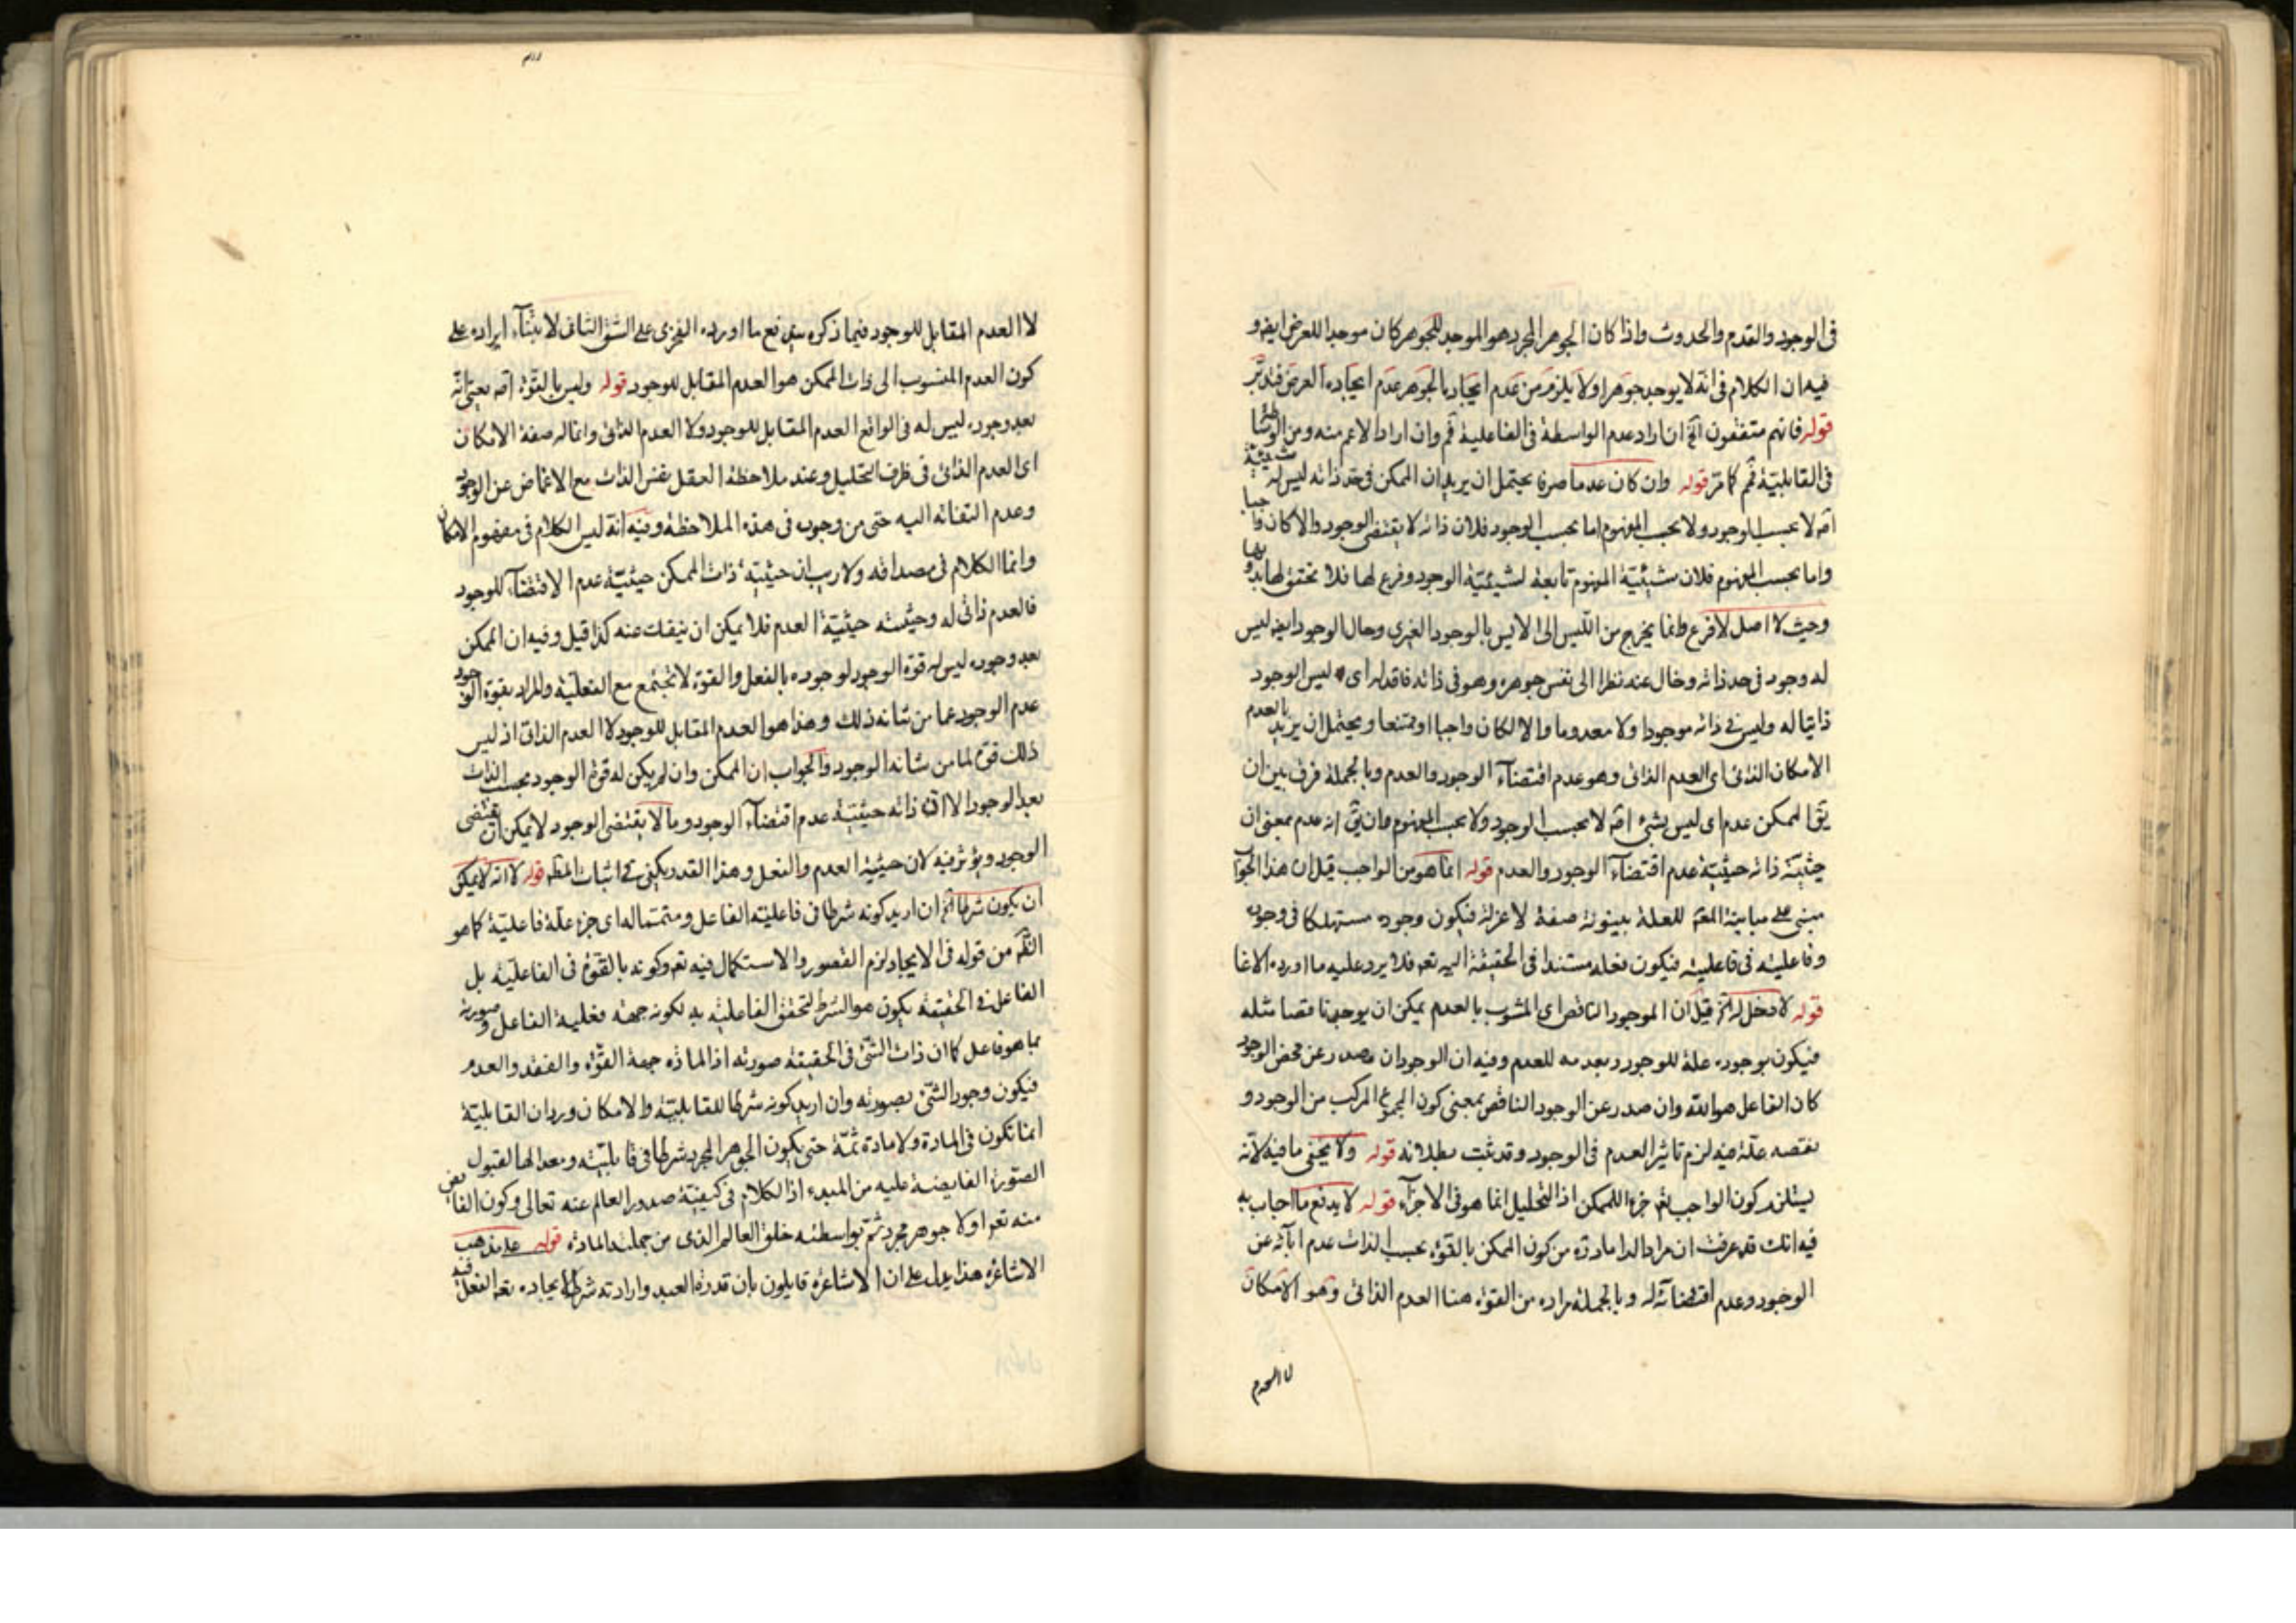 فى الوجود والقدم والحدوث واذا كان الجوهر المجرد هو الموجد للجوهر كان موجدا للعرض ايضه و
فيه ان الكلام فى انه لا يوجد جوهرا ولا يلزم من عدم ايجاد بالجوهر عدم ايجاده العرض فتدبّر
قوله فانهم متفقون آلخ ان اراد عدم الواسطة فى الفاعلية فمّ وان اراد الاعم منه ومن
فى القابليّة فمّ كما مرّ قوله وان كان عدما صرفا يحتمل ان يريد ان الممكن فى حدّ ذاته ليس له شيئية
اصّ لا بحسب الوجود ولا بحسب المفهوم اما بحسب الوجود فلان ذاته لا يقتضى الوجود والا كان واجبا
واما بحسب المفهوم فلان شيئيّة المفهوم تابعة لشيئيّة الوجود وفرع لها فلا تحقق لها بدونها
وحيث لا اصل لا فرع وانما يخرج من الليس الى الايس بالوجود الغيرى وحال الوجود ايضه ليس
له وجود فى حد ذاته وخال عنه نظرا الى نفس جوهره وهو فى ذاته فاقد له اى ليس الوجود
ذاتيا له وليس فى ذاته موجودا ولا معدوما والا لكان واجبا او ممتنعا ويحتمل ان يريد بالعدم
الامكان الذاتى اى العدم الذاتى وهو عدم اقتضآء الوجود والعدم وبالجملة فرق بين ان
يقّ الممكن عدم اى ليس بشئ اصّ لا بحسب الوجود ولا بحسب المفهوم وان يقّ انه عدم بمعنى ان
حيثيّة ذاته حيثيّة عدم اقتضآء الوجود والعدم قوله انما هو من الواجب قيل ان هذا الجواب
مبنى على مباينة المعّ للعلة بينونة صفة لا عزلة فيكون وجوده مستهلكا فى وجوده
وفاعليته فى فاعليته فيكون فعله مستندا فى الحقيقة اليه تعه فلا يرد عليه ما اورده الاغا
قوله لا دخل له آلخ قيل ان الموجود الناقص اى المشوب بالعدم يمكن ان يوجد ناقصا مثله
فيكون بوجوده علة للوجود وبعدمه للعدم وفيه ان الوجود ان صدر عن محض الوجود
كان الفاعل هو الله وان صدر عن الوجود الناقص بمعنى كون المجموع المركب من الوجود و
نقصه علّة فيه لزم تاثير العدم فى الوجود وقد ثبت بطلانه قوله ولا يخفى ما فيه لانّه
يستلزم كون الواجب تعه جزء للممكن اذ التحليل انما هو فى الاجزآء قوله لا يدفع ما اجاب به
فيه انك قد عرفت ان مراد الداماد ره من كون الممكن بالقوة بحسب الذات عدم ابآئه عن
الوجود وعدم اقتضائه له وبالجملة مراده من القوة هنا العدم الذاتى وهو الامكان
لا العدم
لا العدم المقابل للوجود فيما ذكره يندفع ما اورده الفخرى على الشق الثانى لابتنآء ايراده على
كون العدم المنسوب الى ذات الممكن هو العدم المقابل للوجود قوله وليس بالقوّة اصّ يعنى انّه
بعد وجوده ليس له فى الواقع العدم المقابل للوجود ولا العدم الذاتى وانما له صفة الامكان
اى العدم الذاتى فى ظرف التحليل وعند ملاحظة العقل نفس الذات مع الاغماض عن الوجود
وعدم التفاته اليه حتى من وجوب فى هذه الملاحظة وفيه انه ليس الكلام فى مفهوم الامكان
وانما الكلام فى مصداقه ولا ريب ان حيثيّة ذات الممكن حيثيّة عدم الاقتضآء للوجود
فالعدم ذاتى له وحيثيته حيثيّة العدم فلا يمكن ان ينفك عنه كذا قيل وفيه ان الممكن
بعد وجوده ليس له قوّة الوجود لوجوده بالفعل والقوة لا تجتمع مع الفعليّة والمراد بقوة الوجود
عدم الوجود عما من شانه ذلك وهذا هو العدم المقابل للوجود لا العدم الذاتى اذ ليس
ذلك قوة لما من شانه الوجود والجواب ان الممكن وان لم يكن له قوة الوجود بحسب الذات
بعد الوجود الا ان ذاته حيثيّة عدم اقتضآء الوجود وما لا يقتضى الوجود لا يمكن ان يقتضى
الوجود ويؤثر فيه لان حيثيّة العدم والفعل وهذا القدر يكفى فى اثبات المطّ قوله لانه لا يمكن
ان يكون شرطا آلخ ان اريد كونه شرطا فى فاعليّة الفاعل ومتمّما له اى جزء علّة فاعليّة كما هو
الظّ من قوله فى الايجاد لزم القصور والاستكمال فيه تعه وكونه بالقوة فى الفاعليّة بل
الفاعل فى الحقيقة يكون هو الشرط لتحقق الفاعليّة به لكونه جهة فعلية الفاعل وصورته
بما هو فاعل كما ان ذات الشئ فى الحقيقة صورته اذ المادّه جهة القوّة والفقد والعدم
فيكون وجود الشئ بصورته وان اريد كونه شرطا للقابليّة والامكان ورد ان القابليّة
انما تكون فى المادة ولا مادة ثمّة حتى يكون الجوهر المجرد شرطا فى قابليّته ومعدا لها لقبول
الصّورة الفايضة عليه من المبدء اذ الكلام فى كيفيّة صدور العالم عنه تعالى وكون الفايض
منه تعه اولا جوهر مجرد ثمّ بواسطته خلق العالم الذى من جملته المادة قوله على مذهب
الاشاعرة هذا يدل على ان الاشاعرة قايلون بان قدرة العبد وارادته شرط لايجاده تعه الفعل فيه